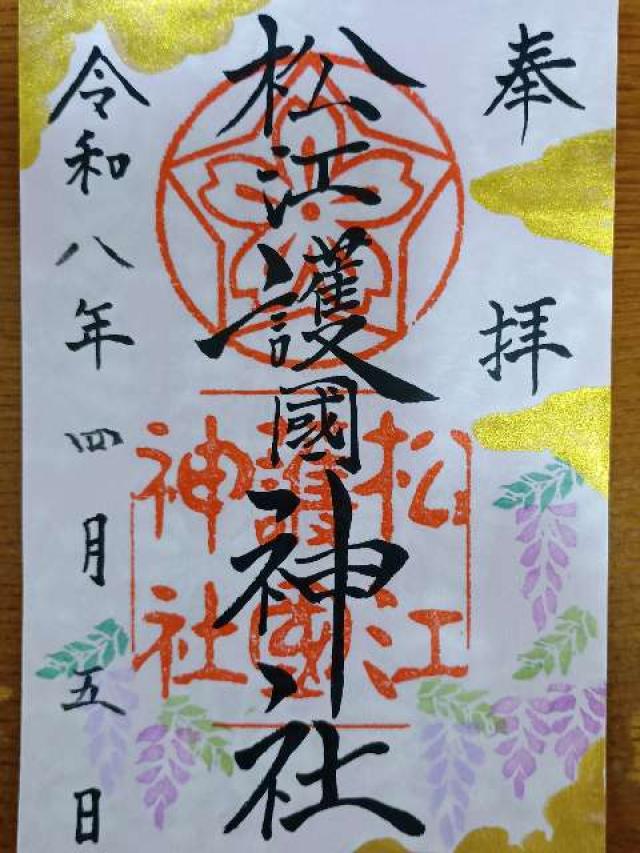 奉拝
松江護國神社
松江
護國
神社
令和八年四月五日